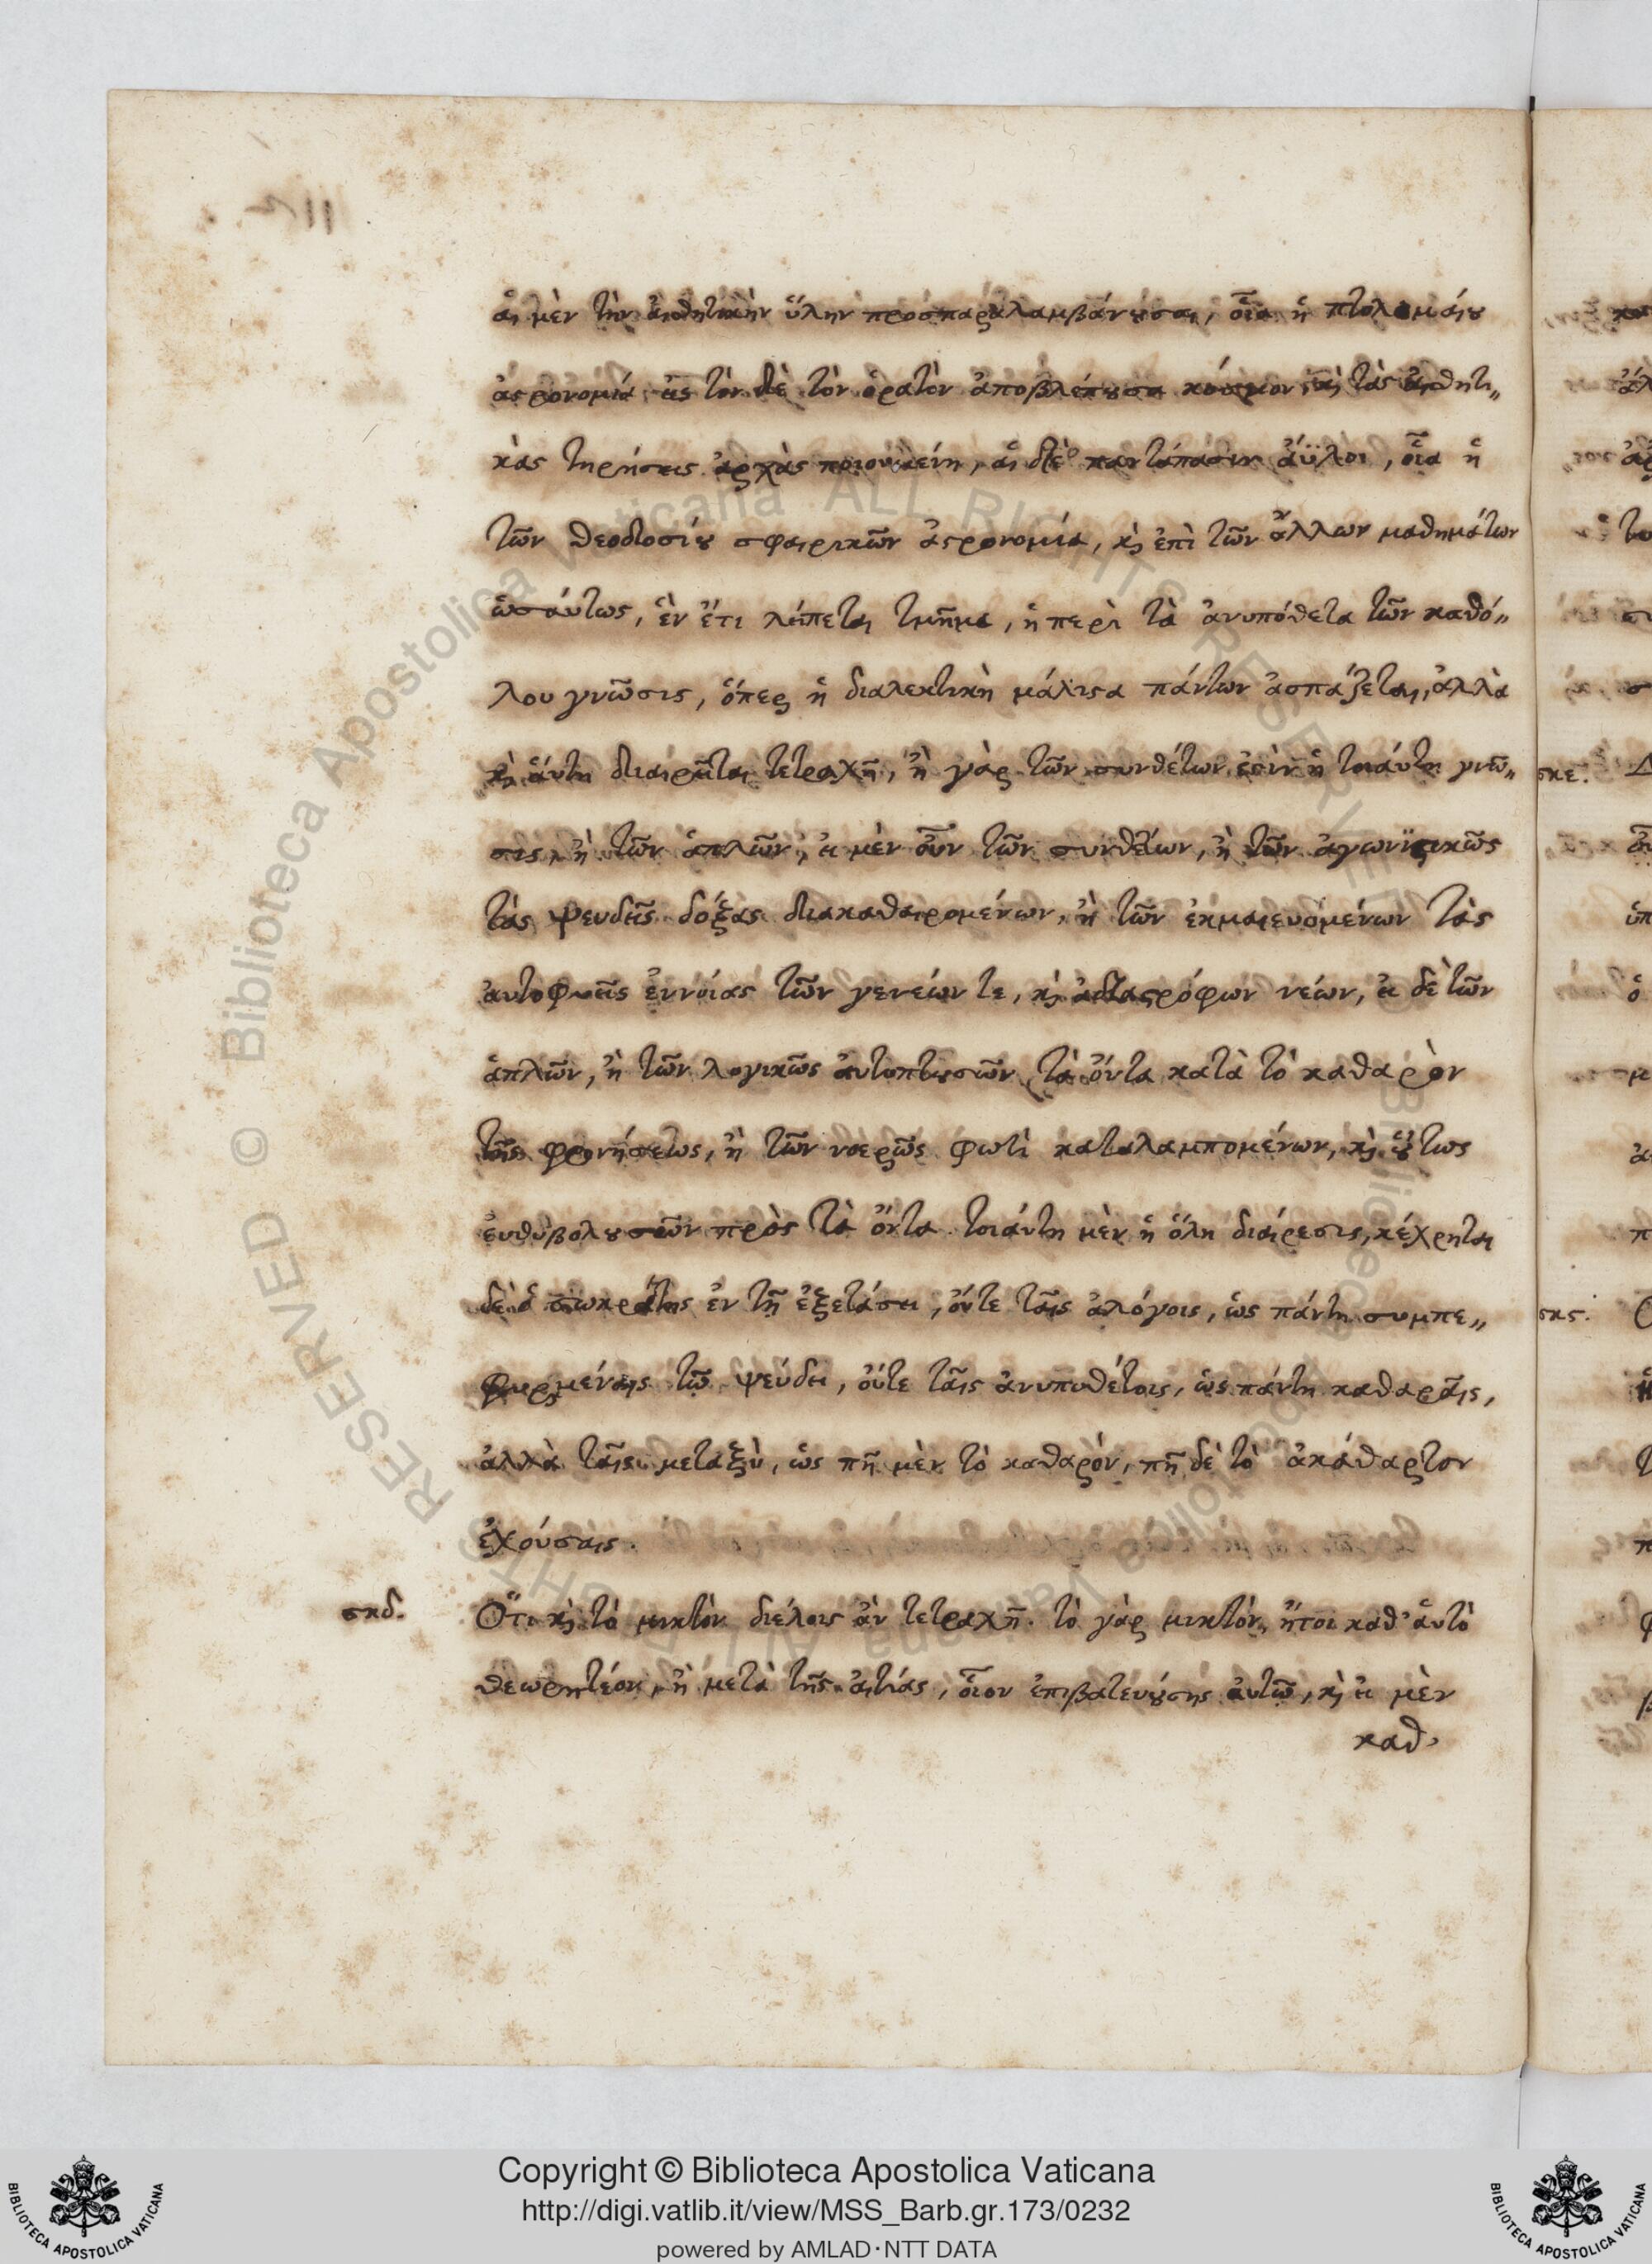 αἱ μὲν τὴν αἰσθητικὴν ὕλην προσπαραλαμβάνουσαι, οἷα ἡ πτολεμαίου
ἀστρονομία εἰς τὸν δὲ τὸν ὁρατὸν ἀποβλέπουσα κόσμον, καὶ τὰς αἰσθητι„
κὰς τηρήσεις ἀρχὰς ποιουμένη, αἱ δὲ παντάπασιν ἄϋλοι, οἷα ἡ
τῶν θεοδοσίου σφαιρικῶν ἀστρονομία, καὶ ἐπὶ τῶν ἄλλων μαθημάτων
ὡσαύτως, ἓν ἔτι λείπεται τμῆμα, ἡ περὶ τὰ ἀνυπόθετα τῶν καθό„
λου γνῶσις, ὅπερ ἡ διαλεκτικὴ μάλιστα πάντων ἀσπάζεται, ἀλλὰ
καὶ αὕτη διαιρεῖται τετραχῆ, ἢ γὰρ τῶν συνθέτων ἐστὶν ἡ τοιαύτη γνῶ„
σις, ἢ τῶν ἁπλῶν, εἰ μὲν οὖν τῶν συνθέτων, ἢ τῶν ἀγωνιστικῶς
τὰς ψευδεῖς δόξας διακαθαιρομένων, ἢ τῶν ἐκμαιευομένων τὰς
αὐτοφυεῖς ἐννοίας τῶν γενείων τε, καὶ ἀδιαστρόφων νέων, εἰ δὲ τῶν
ἁπλῶν, ἢ τῶν λογικῶς αὐτοπτουσῶν τὰ ὄντα κατὰ τὸ καθαρὸν
τῆς φρονήσεως, ἢ τῶν νοερῶς φωτὶ καταλαμπομένων, καὶ οὕτως
εὐθυβολουσῶν πρὸς τὰ ὄντα τοιαύτη μὲν ἡ ὅλη διαίρεσις, κέχρηται
δὲ ὁ σωκράτης ἐν τῇ ἐξετάσει, οὔτε ταῖς ἀλόγοις, ὡς πάντη συμπε„
φυρμέναις τῷ ψεύδει, οὔτε ταῖς ἀνυποθέτοις, ὡς πάντη καθαραῖς,
ἀλλὰ ταῖς μεταξὺ, ὡς πῆ μὲν τὸ καθαρόν, πῆ δὲ τὸ ἀκάθαρτον
ἐχούσαις.
σκδ. Ὅτι καὶ τὸ μικτὸν διέλοις ἂν τετραχῆ. τὸ γὰρ μικτόν, ἤτοι καθ' αὑτὸ
θεωρητέον, ἢ μετὰ τῆς αἰτίας, οἷον ἐπιβατευούσης αὐτῷ, καὶ εἰ μὲν
καθ'
σκε.
σκς.
Copyright © Biblioteca Apostolica Vaticana
http://digi.vatlib.it/view/MSS_Barb.gr.173/0232
powered by AMLAD·NTT DATA